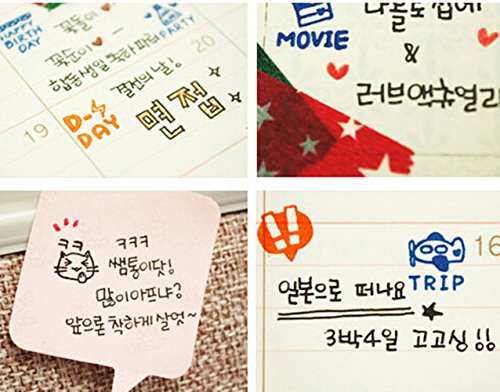 HAPPY
BIRTH
DAY
꽃돌이
꽃순이 ㅡ
합동생일축하파뤼
PARTY
20
결전의 날!
19
D-
DAY
면접
MOVIE
나홀로 집에
&
러브액츄얼리
ㅋㅋ
ㅋㅋㅋ
쌤통이닷!
많이아프냐?
앞으론 착하게 살엇~
!!
16
TRIP
일본으로 떠나요
3박4일 고고싱!!